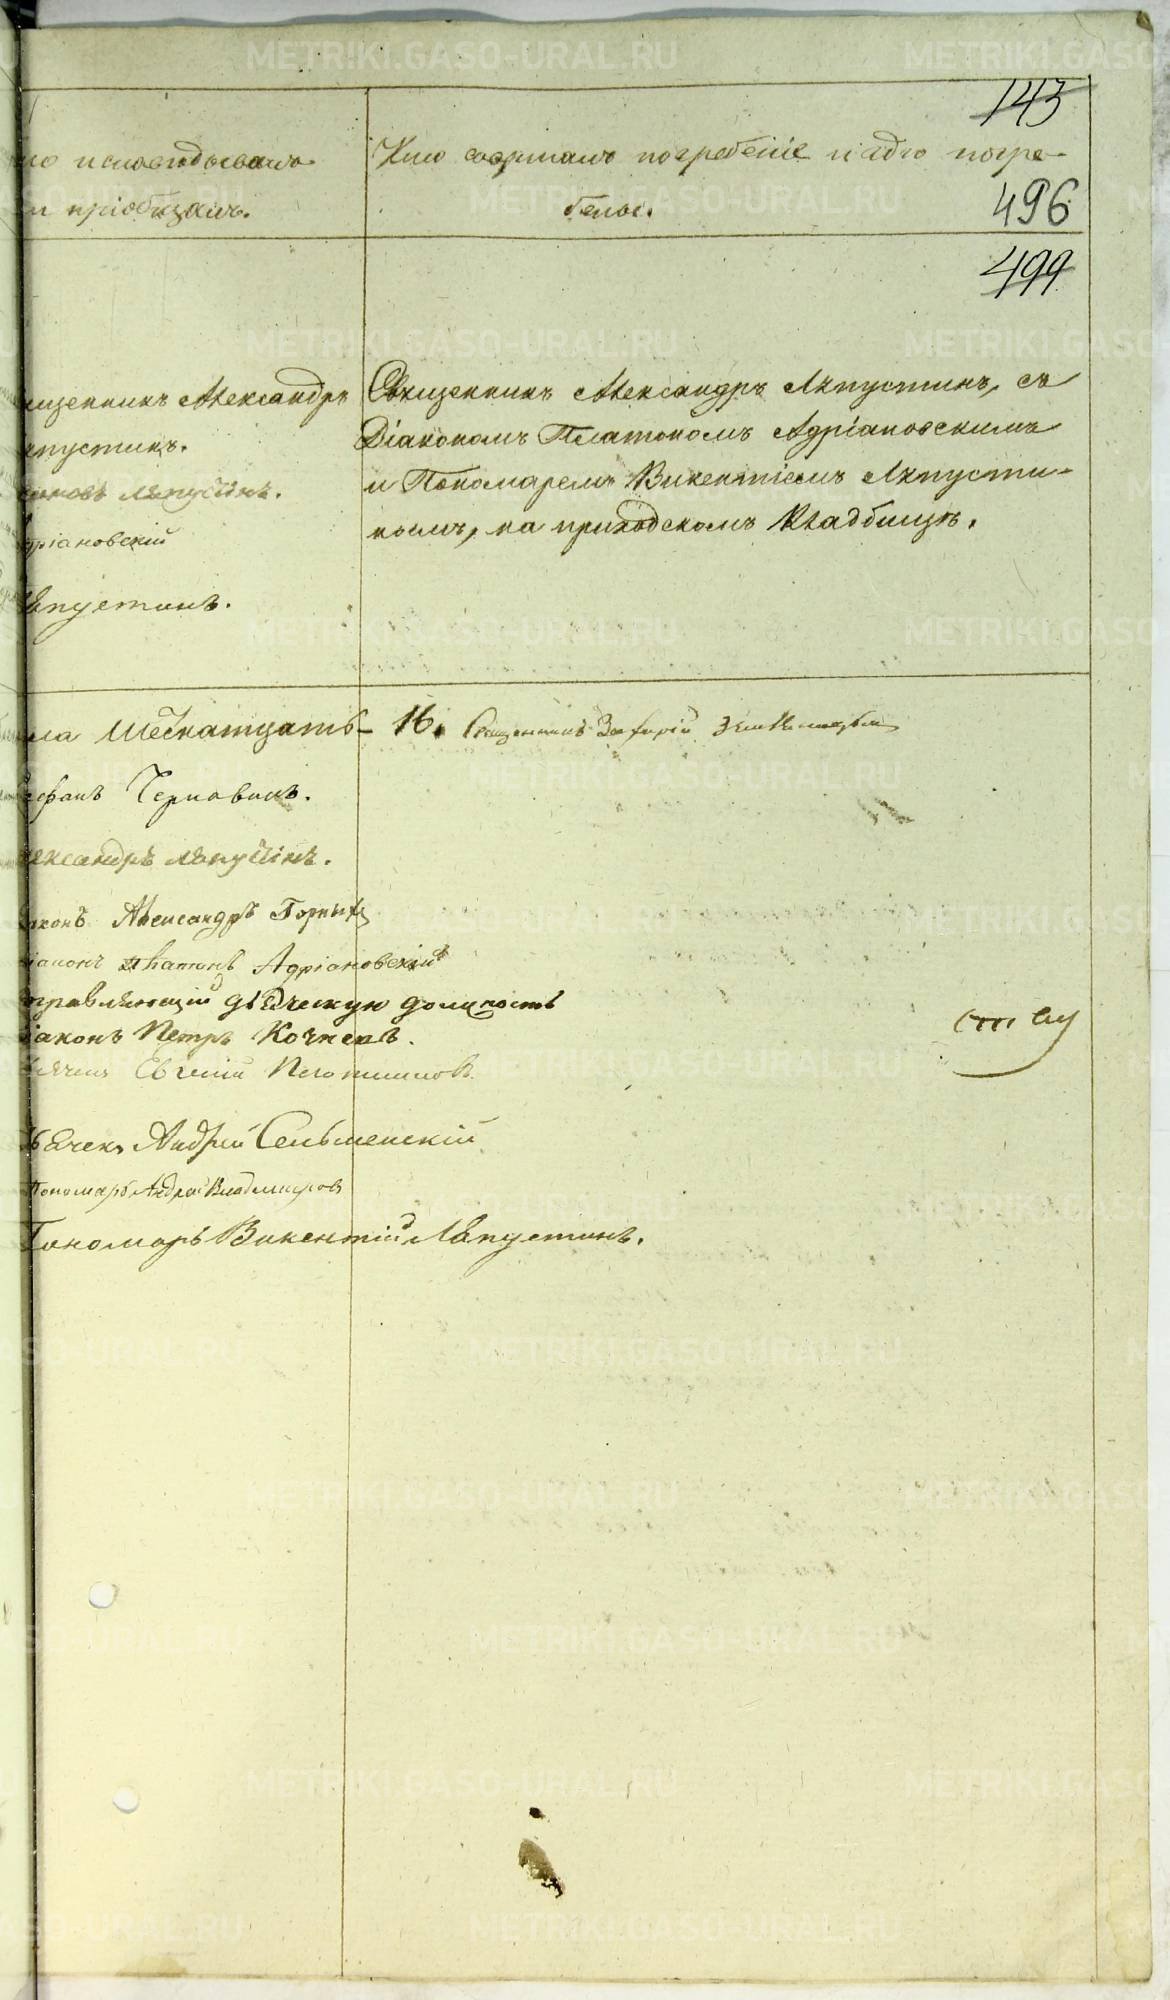 143
то исповѣдывалъ
и пріобщалъ.
Кто совершалъ погребеніе и гдѣ погре-
бены.
496
499
щенникъ Александръ
пустинъ.
Ляпустинъ.
ріановскій
япустинъ.
Священникъ Александръ Ляпустинъ, съ
Діакономъ Платономъ Адріановскимъ
и Пономаремъ Викентіемъ Ляпусти-
номъ, на приходскомъ Кладбищѣ.
ла шеснатцать - 16. Священникъ Захарій
фанъ Черновинъ.
лександръ Ляпустинъ.
конъ Александръ Горныхъ
іаконъ Платонъ Адріановскій
правляющій дьяческую должность
іаконъ Петръ Кочневъ.
Евгеній
ячекъ Андрей Сельменскій
Пономарь Андрей Владимировъ
Пономарь Викентій Ляпустинъ.
METRIKI.GASO-URAL.RU